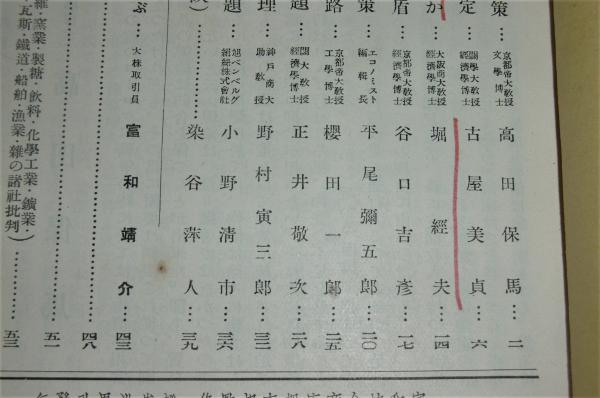 策…京都帝大教授 文學博士 高田保馬…二
定…關學大教授 經濟學博士 古屋美貞…六
か…大阪商大教授 經濟學博士 堀經夫…一四
盾…京都帝大教授 經濟學博士 谷口吉彥…一七
策…エコノミスト 編輯長 平尾彌五郎…二〇
路…京都帝大教授 工學博士 櫻田一郎…二五
題…關大教授 經濟學博士 正井敬次…二八
理…神戶商大 助教授 野村寅三郎…三二
題…旭ベンベルグ 絹絲株式會社 小野淸市…三六
染谷萍人…三九
ぶ…大株取引員 富和靖介…四三
四八
五一
維・窯業・製糖・飲料・化學工業・鑛業・
瓦斯・鐵道・船舶・漁業・雜の諸社批判)
五三